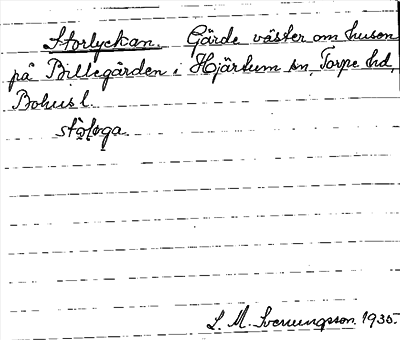 Storlyckan. Gärde väster om husen
på Billegården i Hjärtum sn, Torpe hd,
Bohusl.
L. M. Svenungsson 1935.